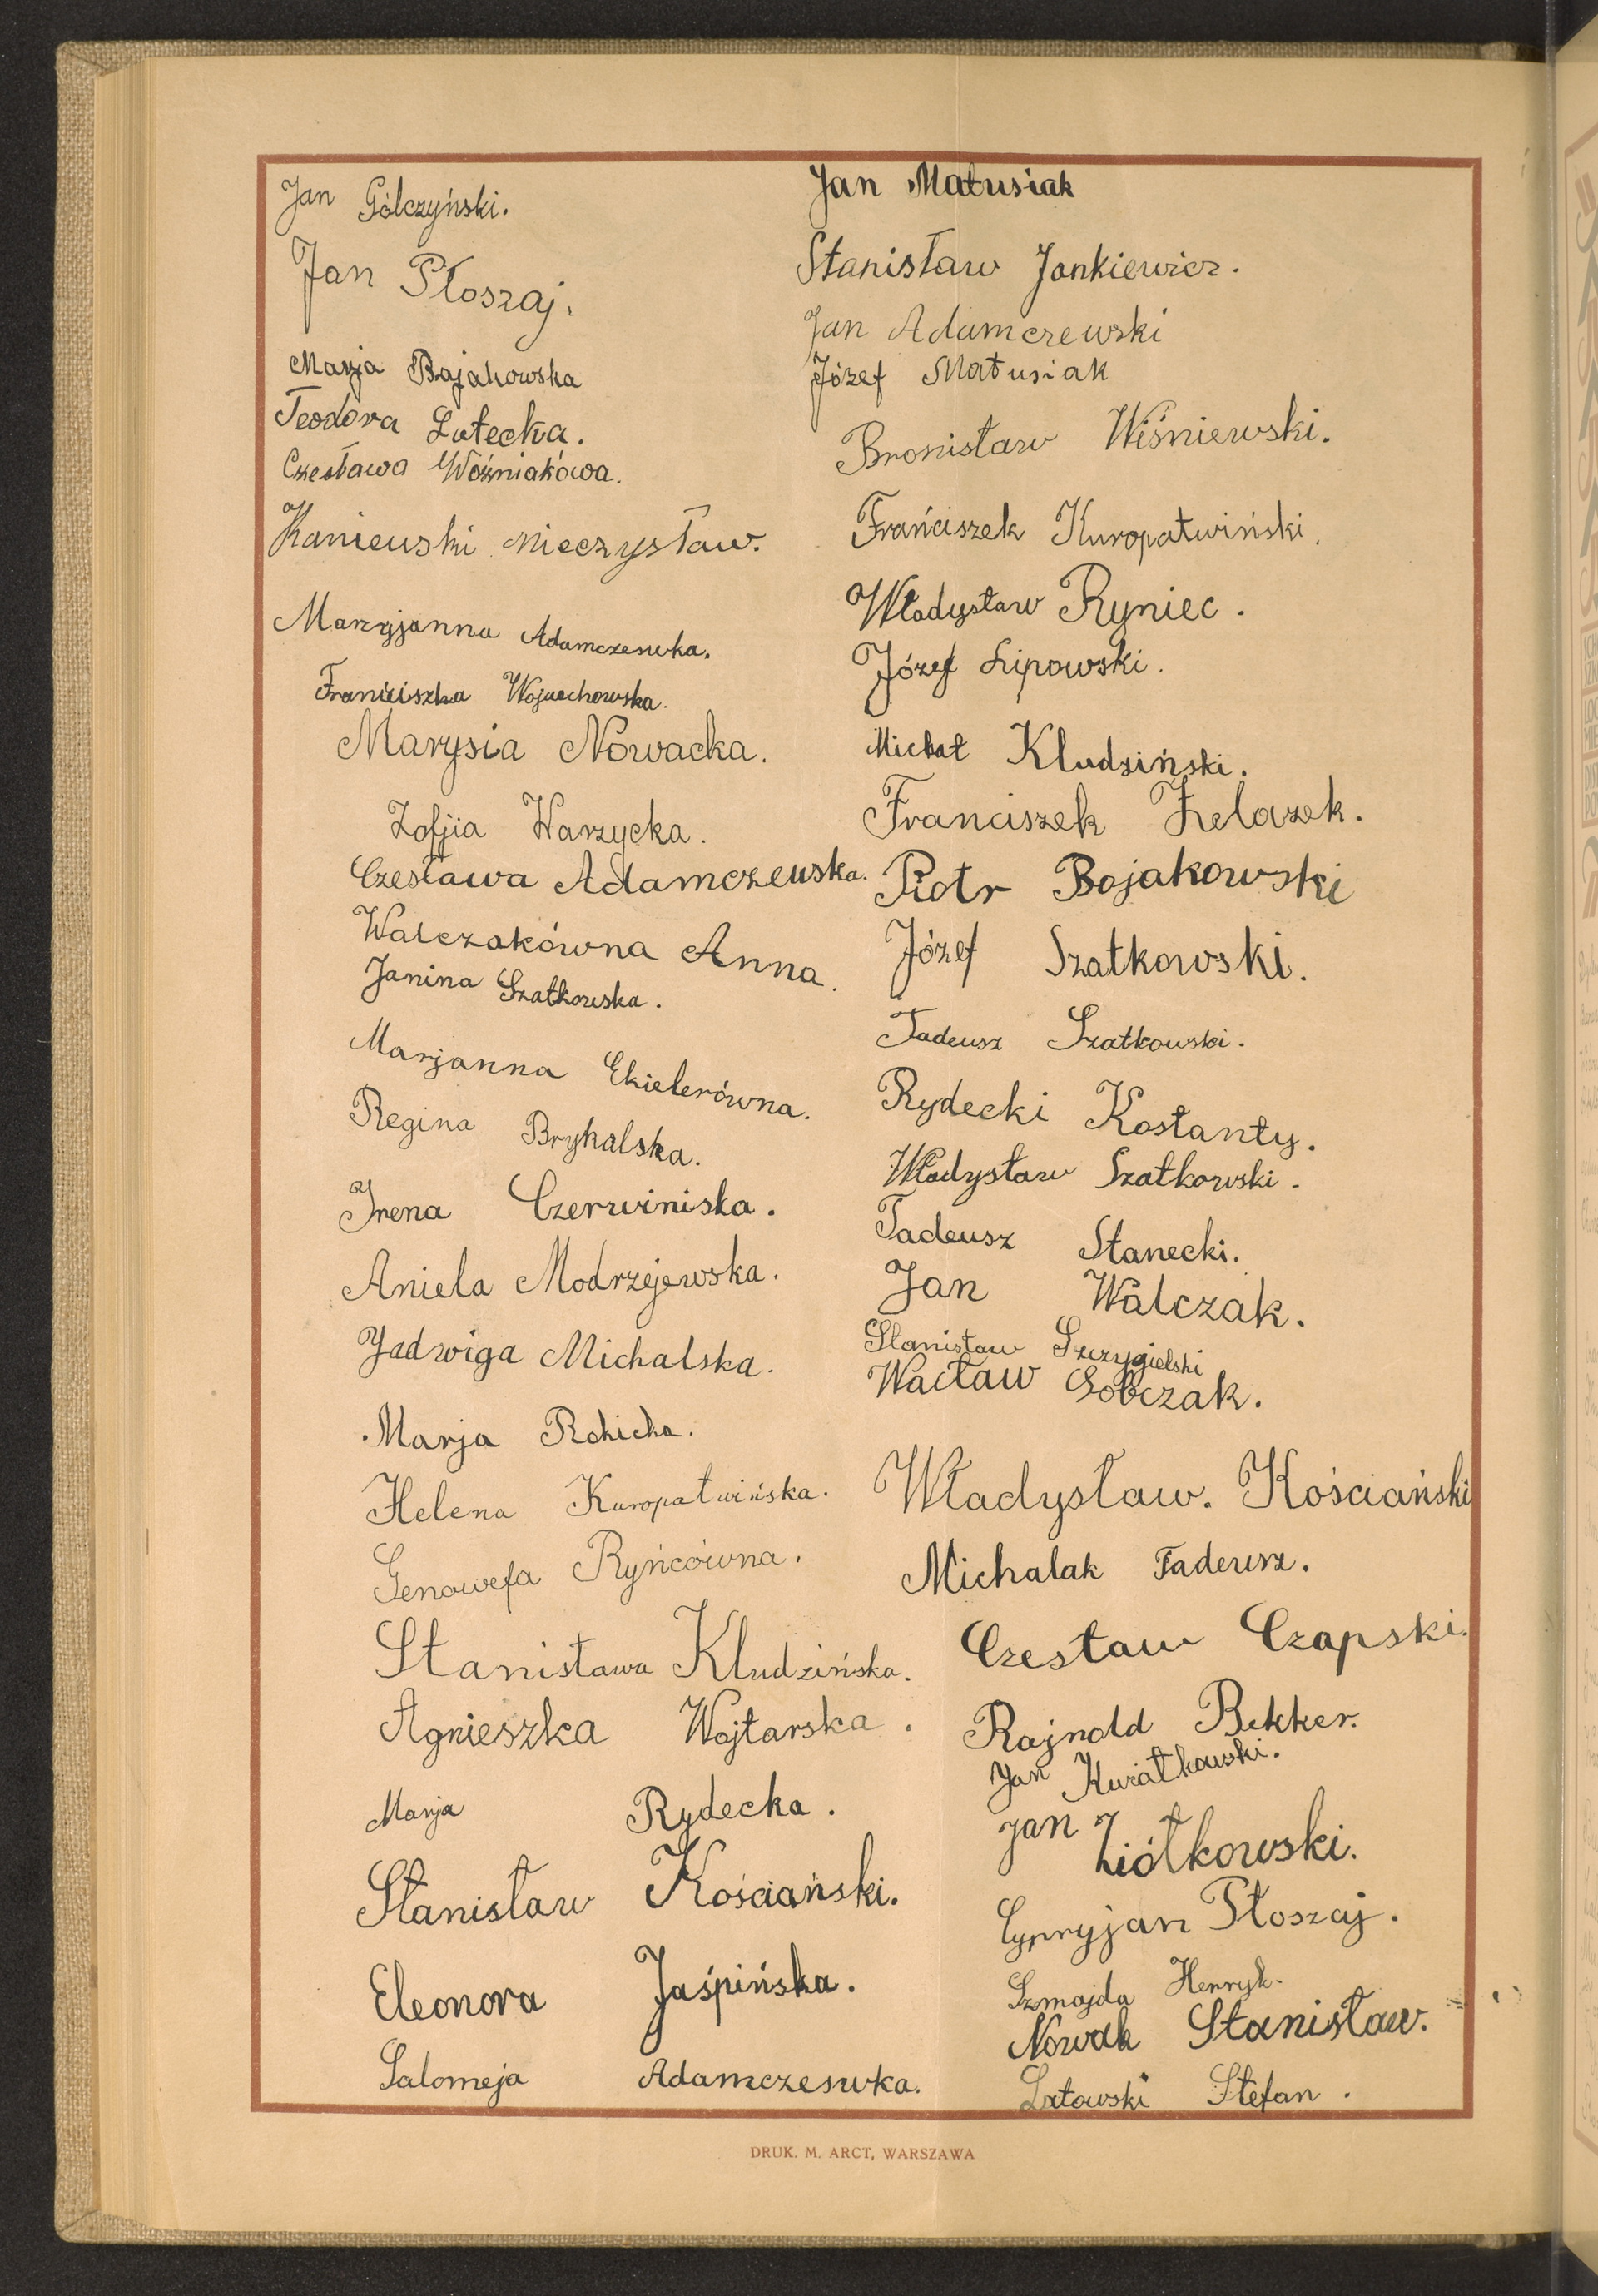 Jan Gólczyński.
Jan Płoszaj.
Marja Bajakowska
Teodora Lutecka.
Czesława Woźniakówa.
Kaniewski Mieczysław.
Maryjanna Adamczeswka.
Franiciszka Wojuechowska.
Marysia Nowacka.
Zofjia Warzycka.
Czesława Adamczewska.
Walczakówna Anna.
Janina Szatkowska.
Marjanna Ekielerówna.
Regina Brykalska.
Irena Czerwiniska.
Aniela Modrzejewska.
Jadwiga Michalska.
Marja Rokicka.
Helena Kuropatwińska.
Genowefa Ryńcówna.
Stanisława Kludzińska.
Agnieszka Wojtarska.
Marja Rydecka.
Stanisław Kościański.
Eleonora Jaśpińska.
Salomeja Adamczeswka.
Jan Matusiak
Stanisław Jankiewicz.
Jan Adamczewski
Józef Matusiak
Bronisław Wiśniewski.
Frańciszek Kuropatwiński.
Władysław Ryniec.
Józef Lipowski.
Michał Kludziński.
Franciszek Żelazek.
Piotr Bojakowski
Józef Szatkowski.
Tadeusz Szatkowski.
Rydecki Kostanty.
Władysław Szatkowski.
Tadeusz Stanecki.
Jan Walczak.
Stanisław Szczygielski
Wacław Sobczak.
Władysław. Kościański
Michalak Tadeusz.
Czesław Czapski.
Rajnold Bekker.
Jan Kwiatkowski.
Jan Ziółkowski.
Cypryjan Płoszaj.
Szmajda Henryk.
Nowak Stanisław.
Stefan.
DRUK. M. ARCT, WARSZAWA